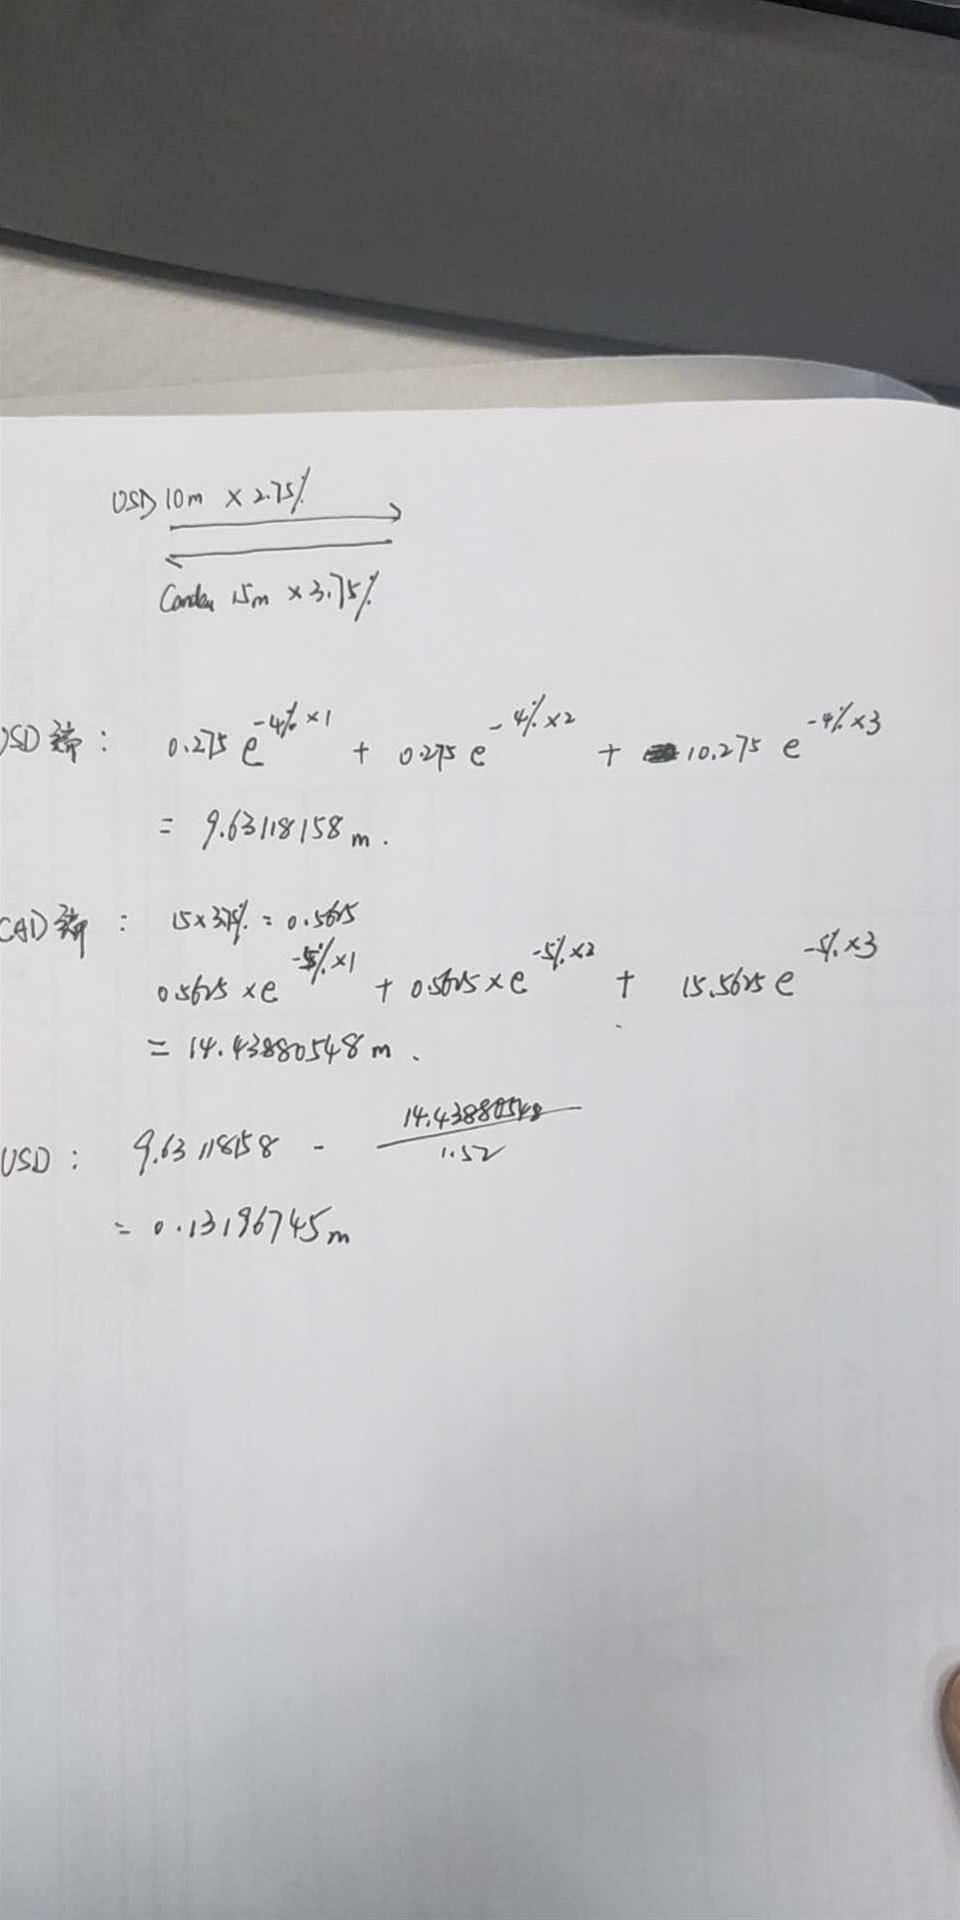 USD 10m × 2.75%
Canda 15m × 3.75%
USD端: 0.275 e^-4%×1 + 0.275 e^-4%×2 + 10.275 e^-4%×3
= 9.63118158 m.
CAD端: 15×3.75% = 0.5625
0.5625 × e^-5%×1 + 0.5625 × e^-5%×2 + 15.5625 e^-5%×3
= 14.43880548 m.
USD: 9.63118158 - 14.43880548/1.52
= 0.13196745 m